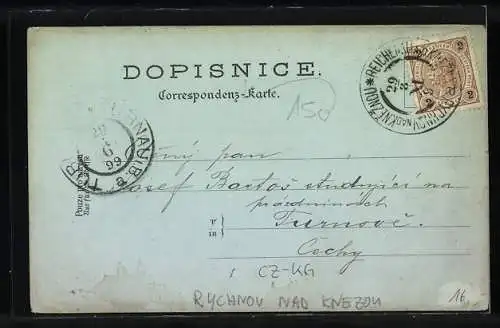 DOPISNICE.
Correspondenz-Karte.
150
REICHENAU
RYCHNOV NAD KNĚŽNOU
29
2
2
TURNAU
29
6
99
Pouze pro adresu.
Nur für die Adresse.
pan
Josef Bartoš studující na
prázdninách
v
in
Turnově.
Čechy
CZ-KG
RYCHNOV NAD KNEZOU
16